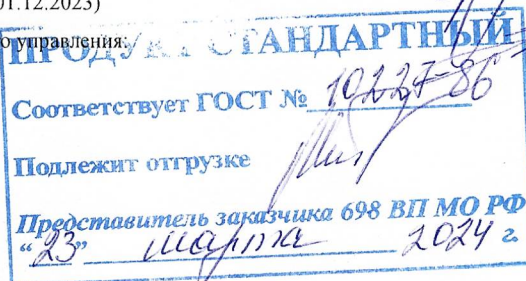 01.12.2023)
о управления:
ПРОДУКТ СТАНДАРТНЫЙ
Соответствует ГОСТ № 10227-86
Подлежит отгрузке
Представитель заказчика 698 ВП МО РФ
“23” марта 2024 г.